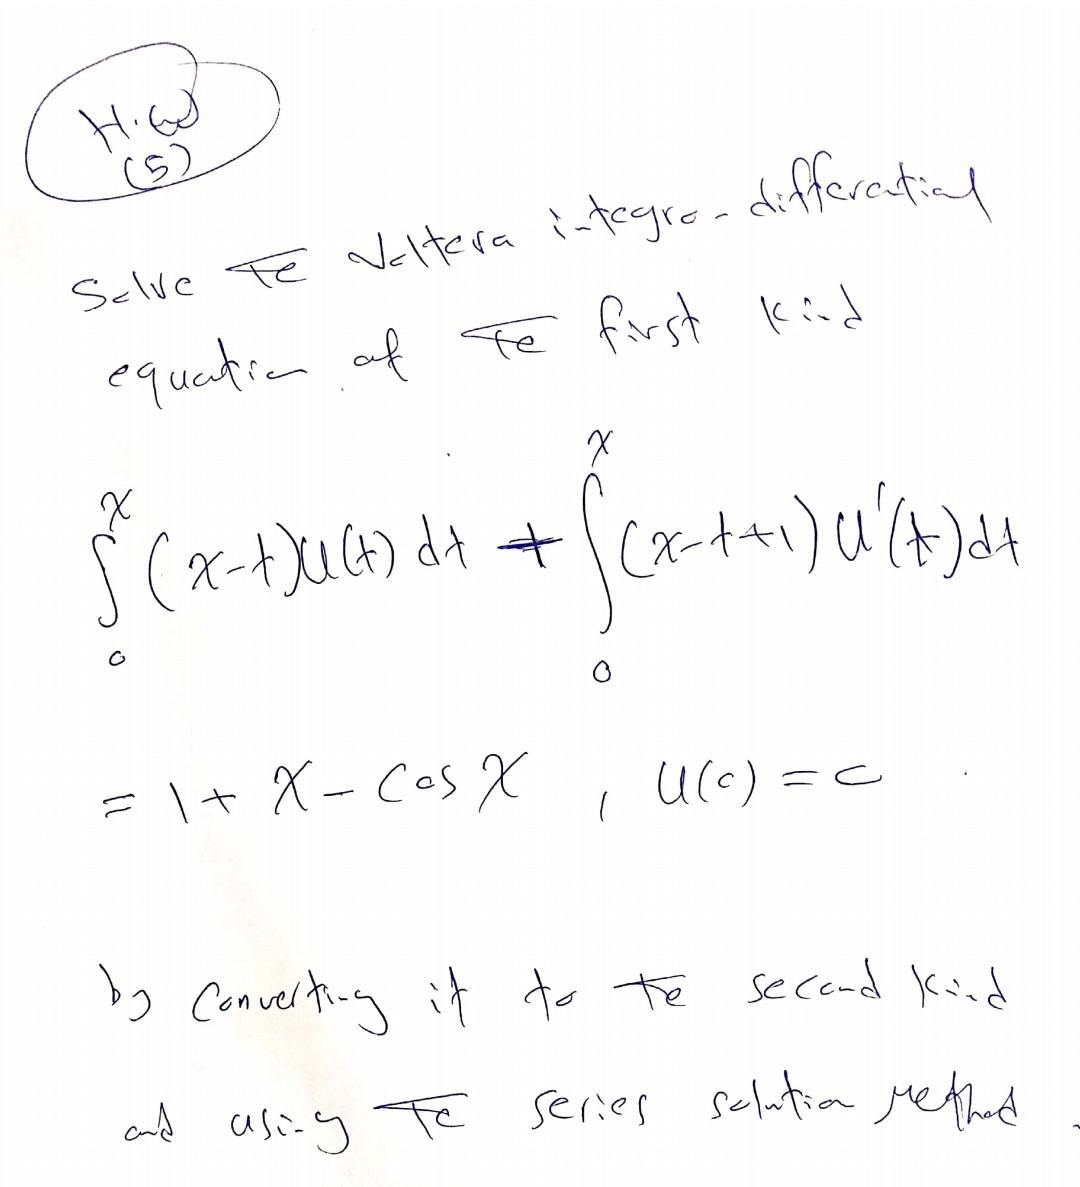 H.W
(5)
Solve The Voltera integro-differential
equation of The first kind
∫₀ˣ (x-t)u(t) dt + ∫₀ˣ (x-t+1) u'(t) dt
= 1 + x - cos x , u(0) = 0
by converting it to the second kind
and using The series solution Method.